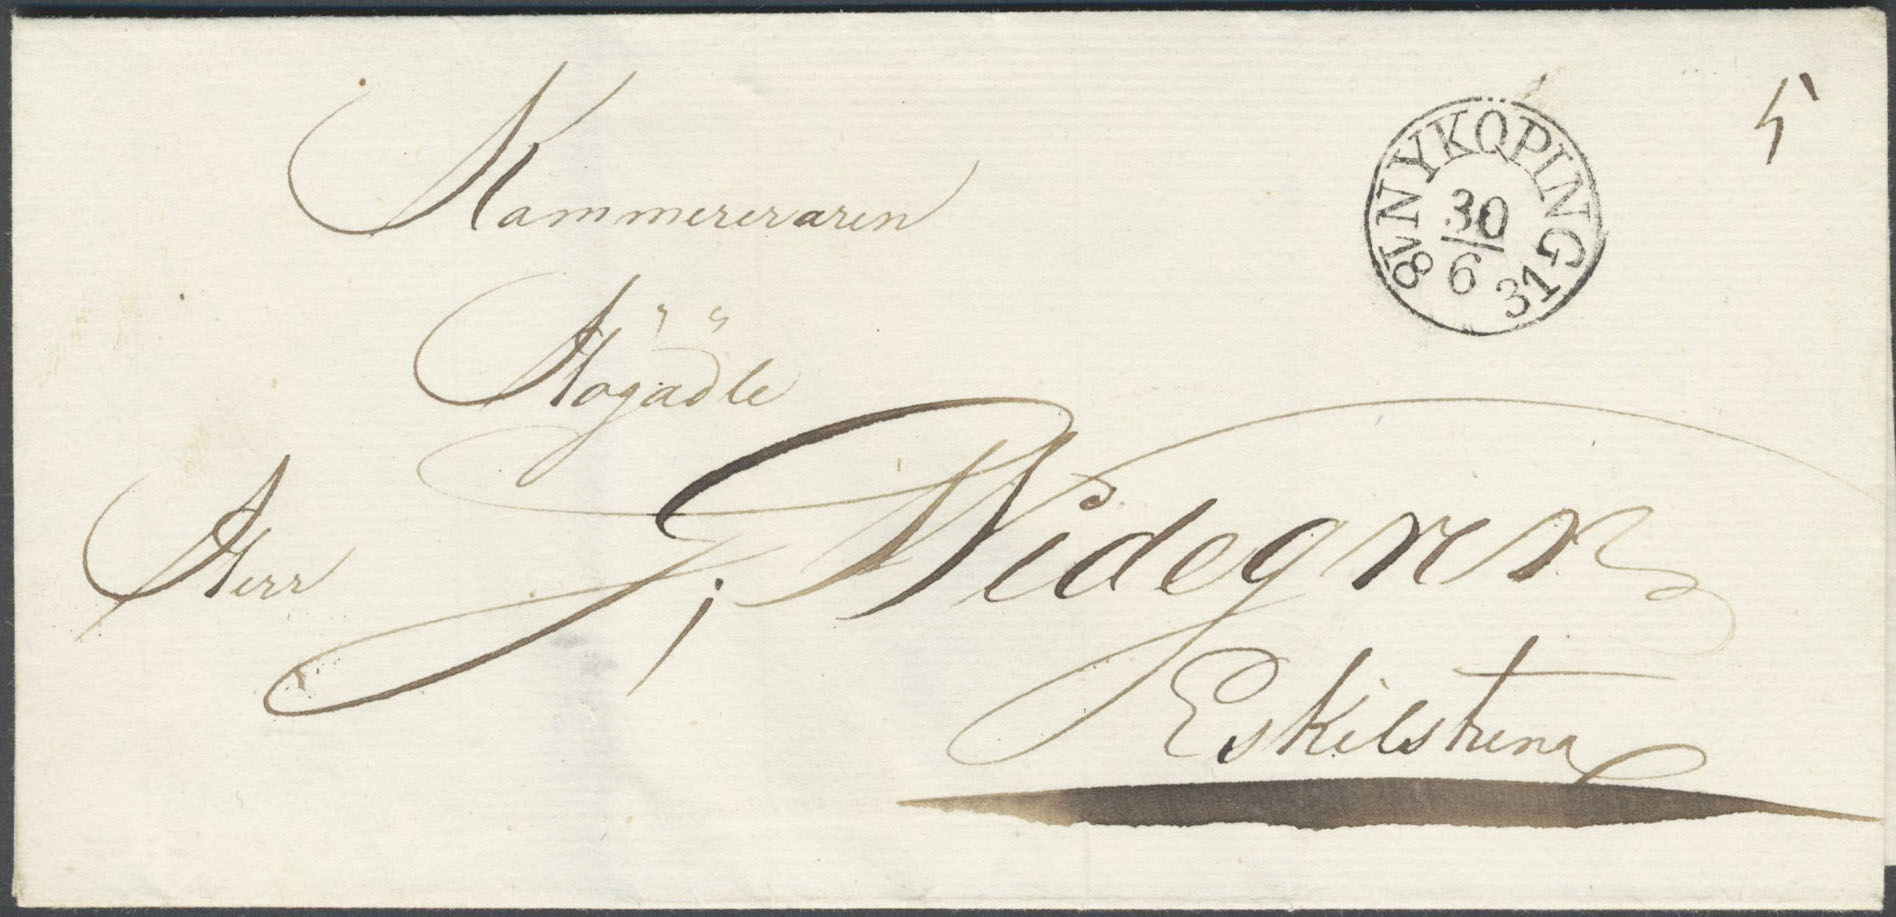 Kammereraren
Högädle
Herr J. Widegren
Eskilstuna
NYKÖPING
30
6
18 31